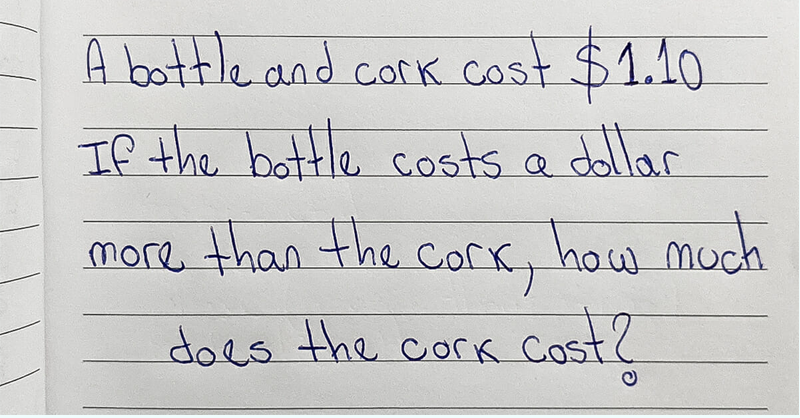 A bottle and cork cost $1.10
If the bottle costs a dollar
more than the cork, how much
does the cork cost?